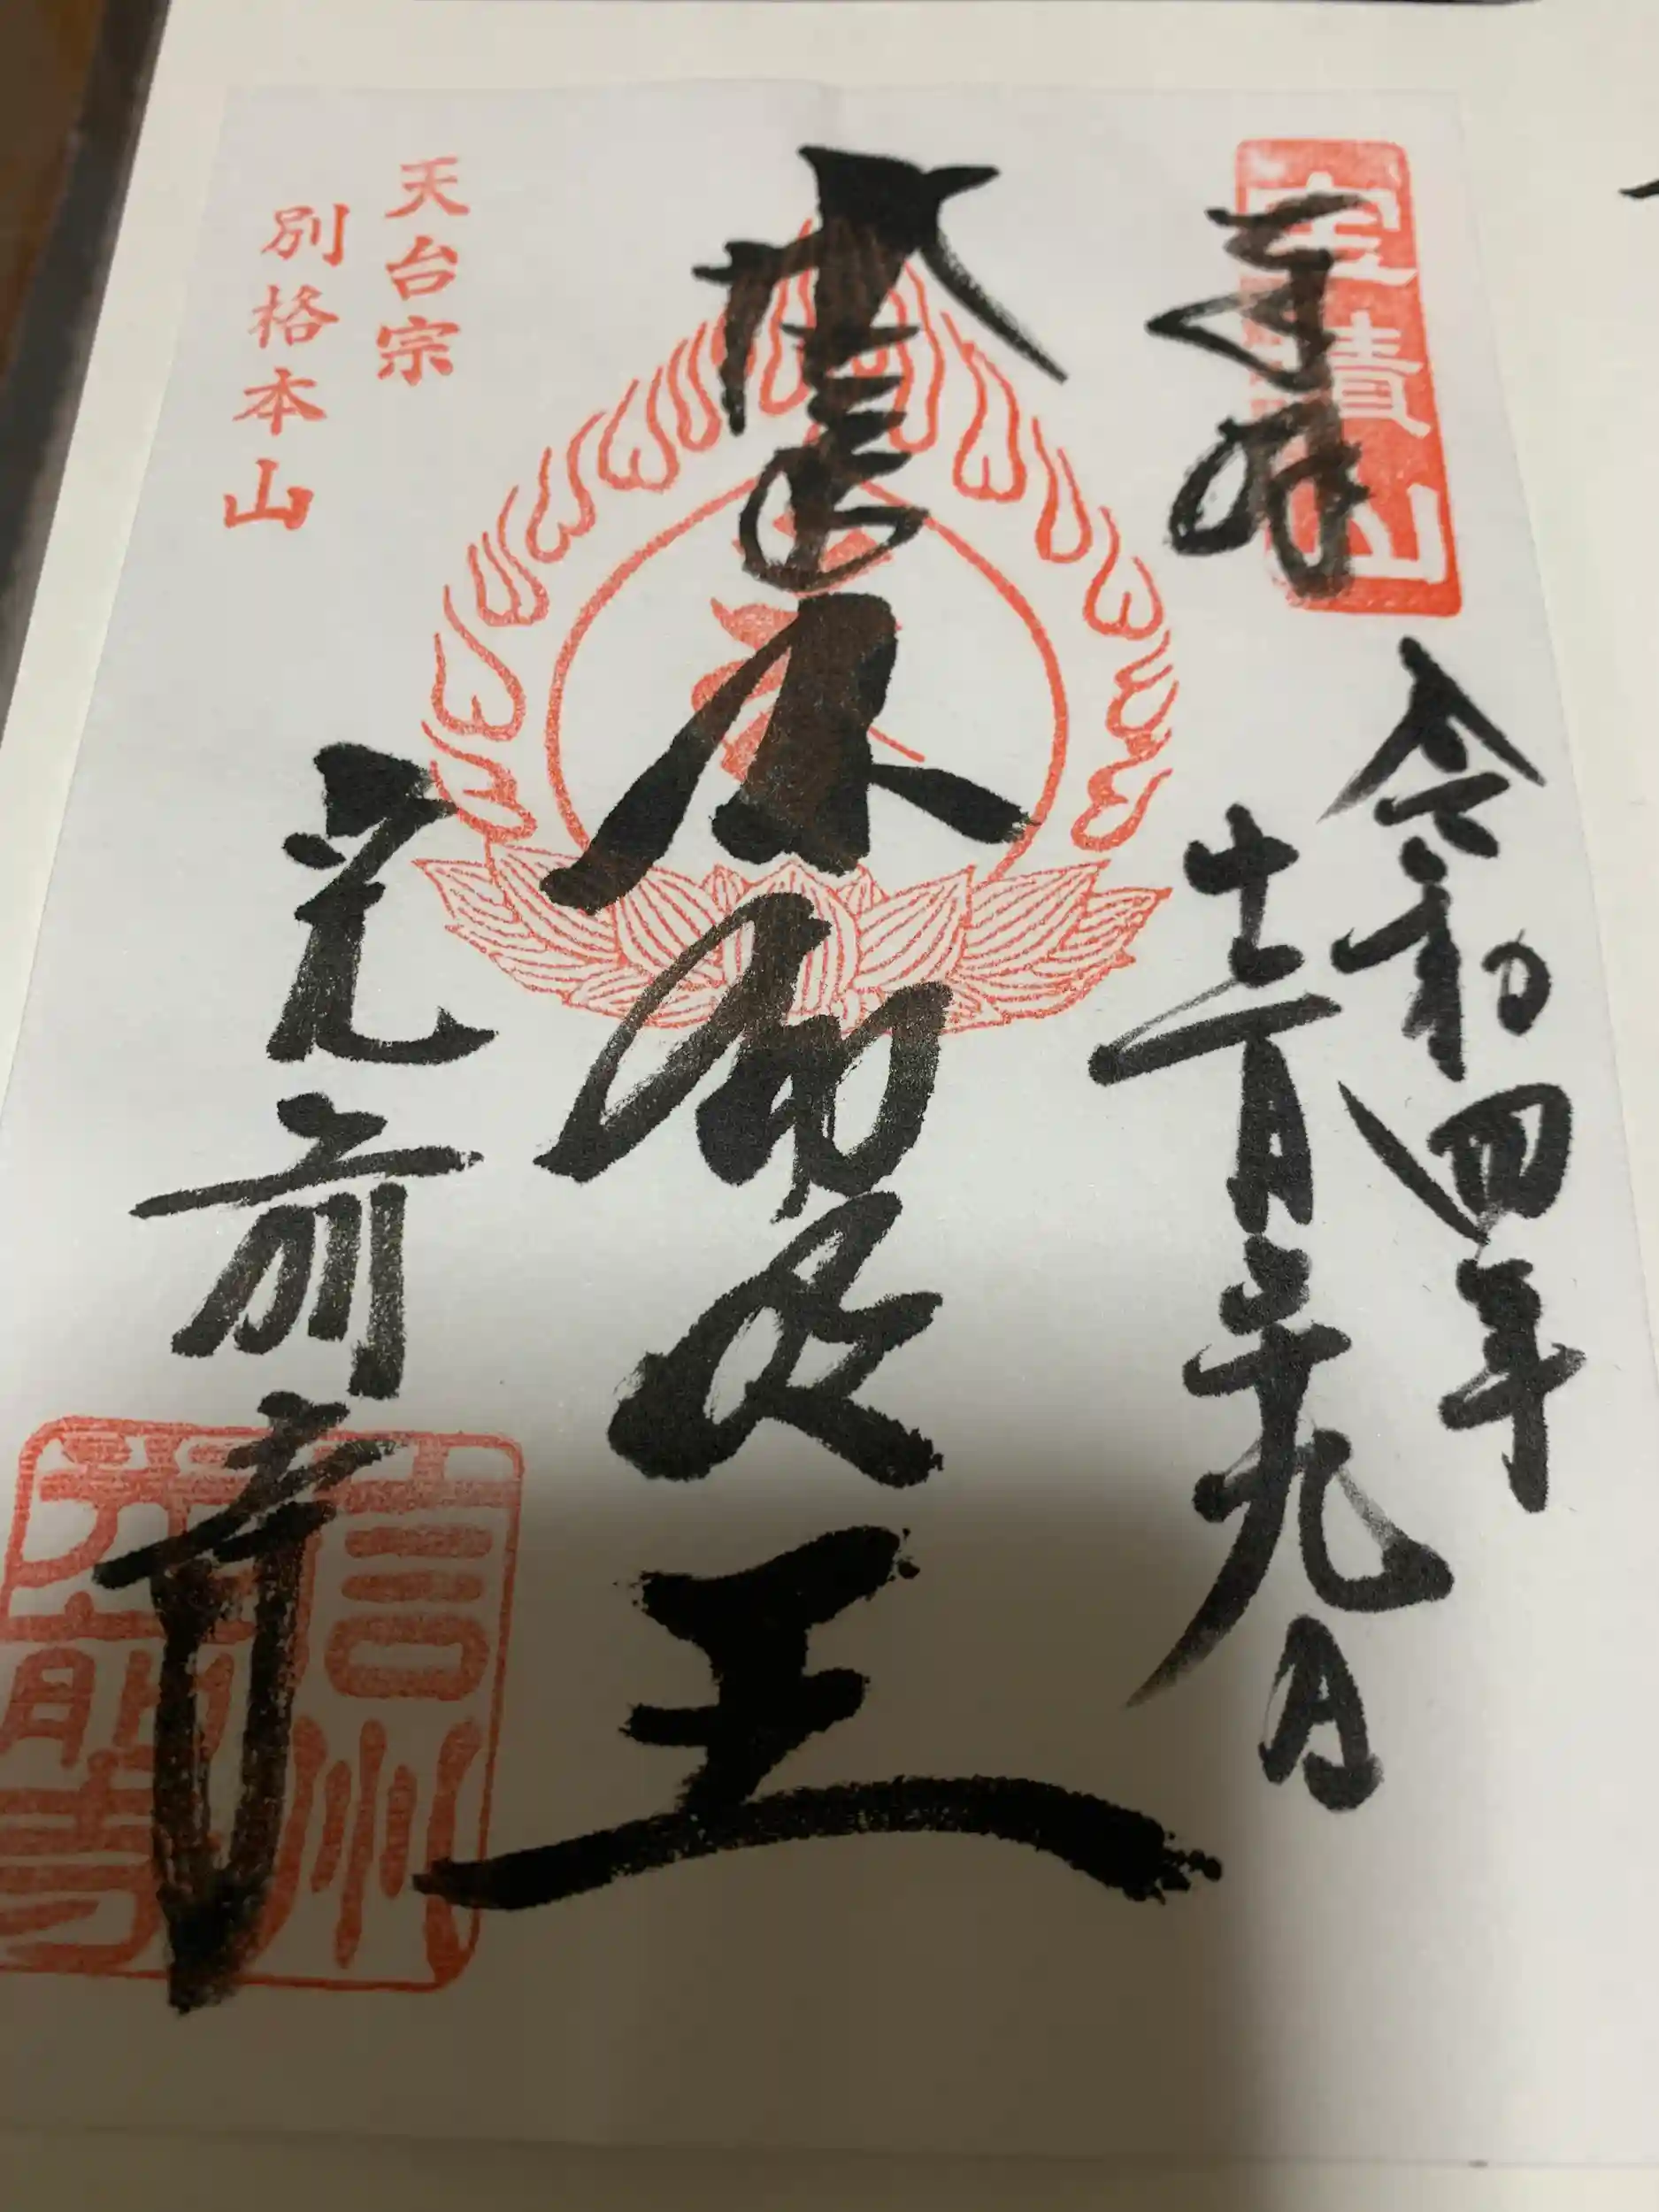 宝積山
奉拝
令和四年
十二月二十九日
不動明王
天台宗
別格本山
光前寺
信州
光前寺